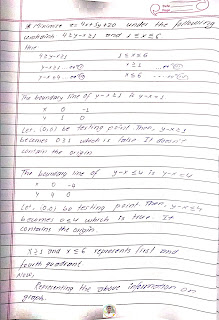 * Maximize z= 4x+5y+20 under the following
constraints 4≥y-x≥1 and 1≤x≤6
Here
4≥y-x≥1 1≤x≤6
y-x≥1 x≥1
y-x≤4 x≤6
The boundary line of y-x≥1 is y-x=1
x 0 -1
y 1 0
Let, (0,0) be testing point. Then, y-x≥1
becomes 0≥1 which is false. It doesn't
contain the origin.
The boundary line of y-x≤4 is y-x=4
x 0 -4
y 4 0
Let, (0,0) be testing point. Then, y-x≤4
becomes 0≤4 which is true. It
contains the origin.
x≥1 and x≤6 represents first and
fourth quadrant
Now,
Presenting the above information on
graph.